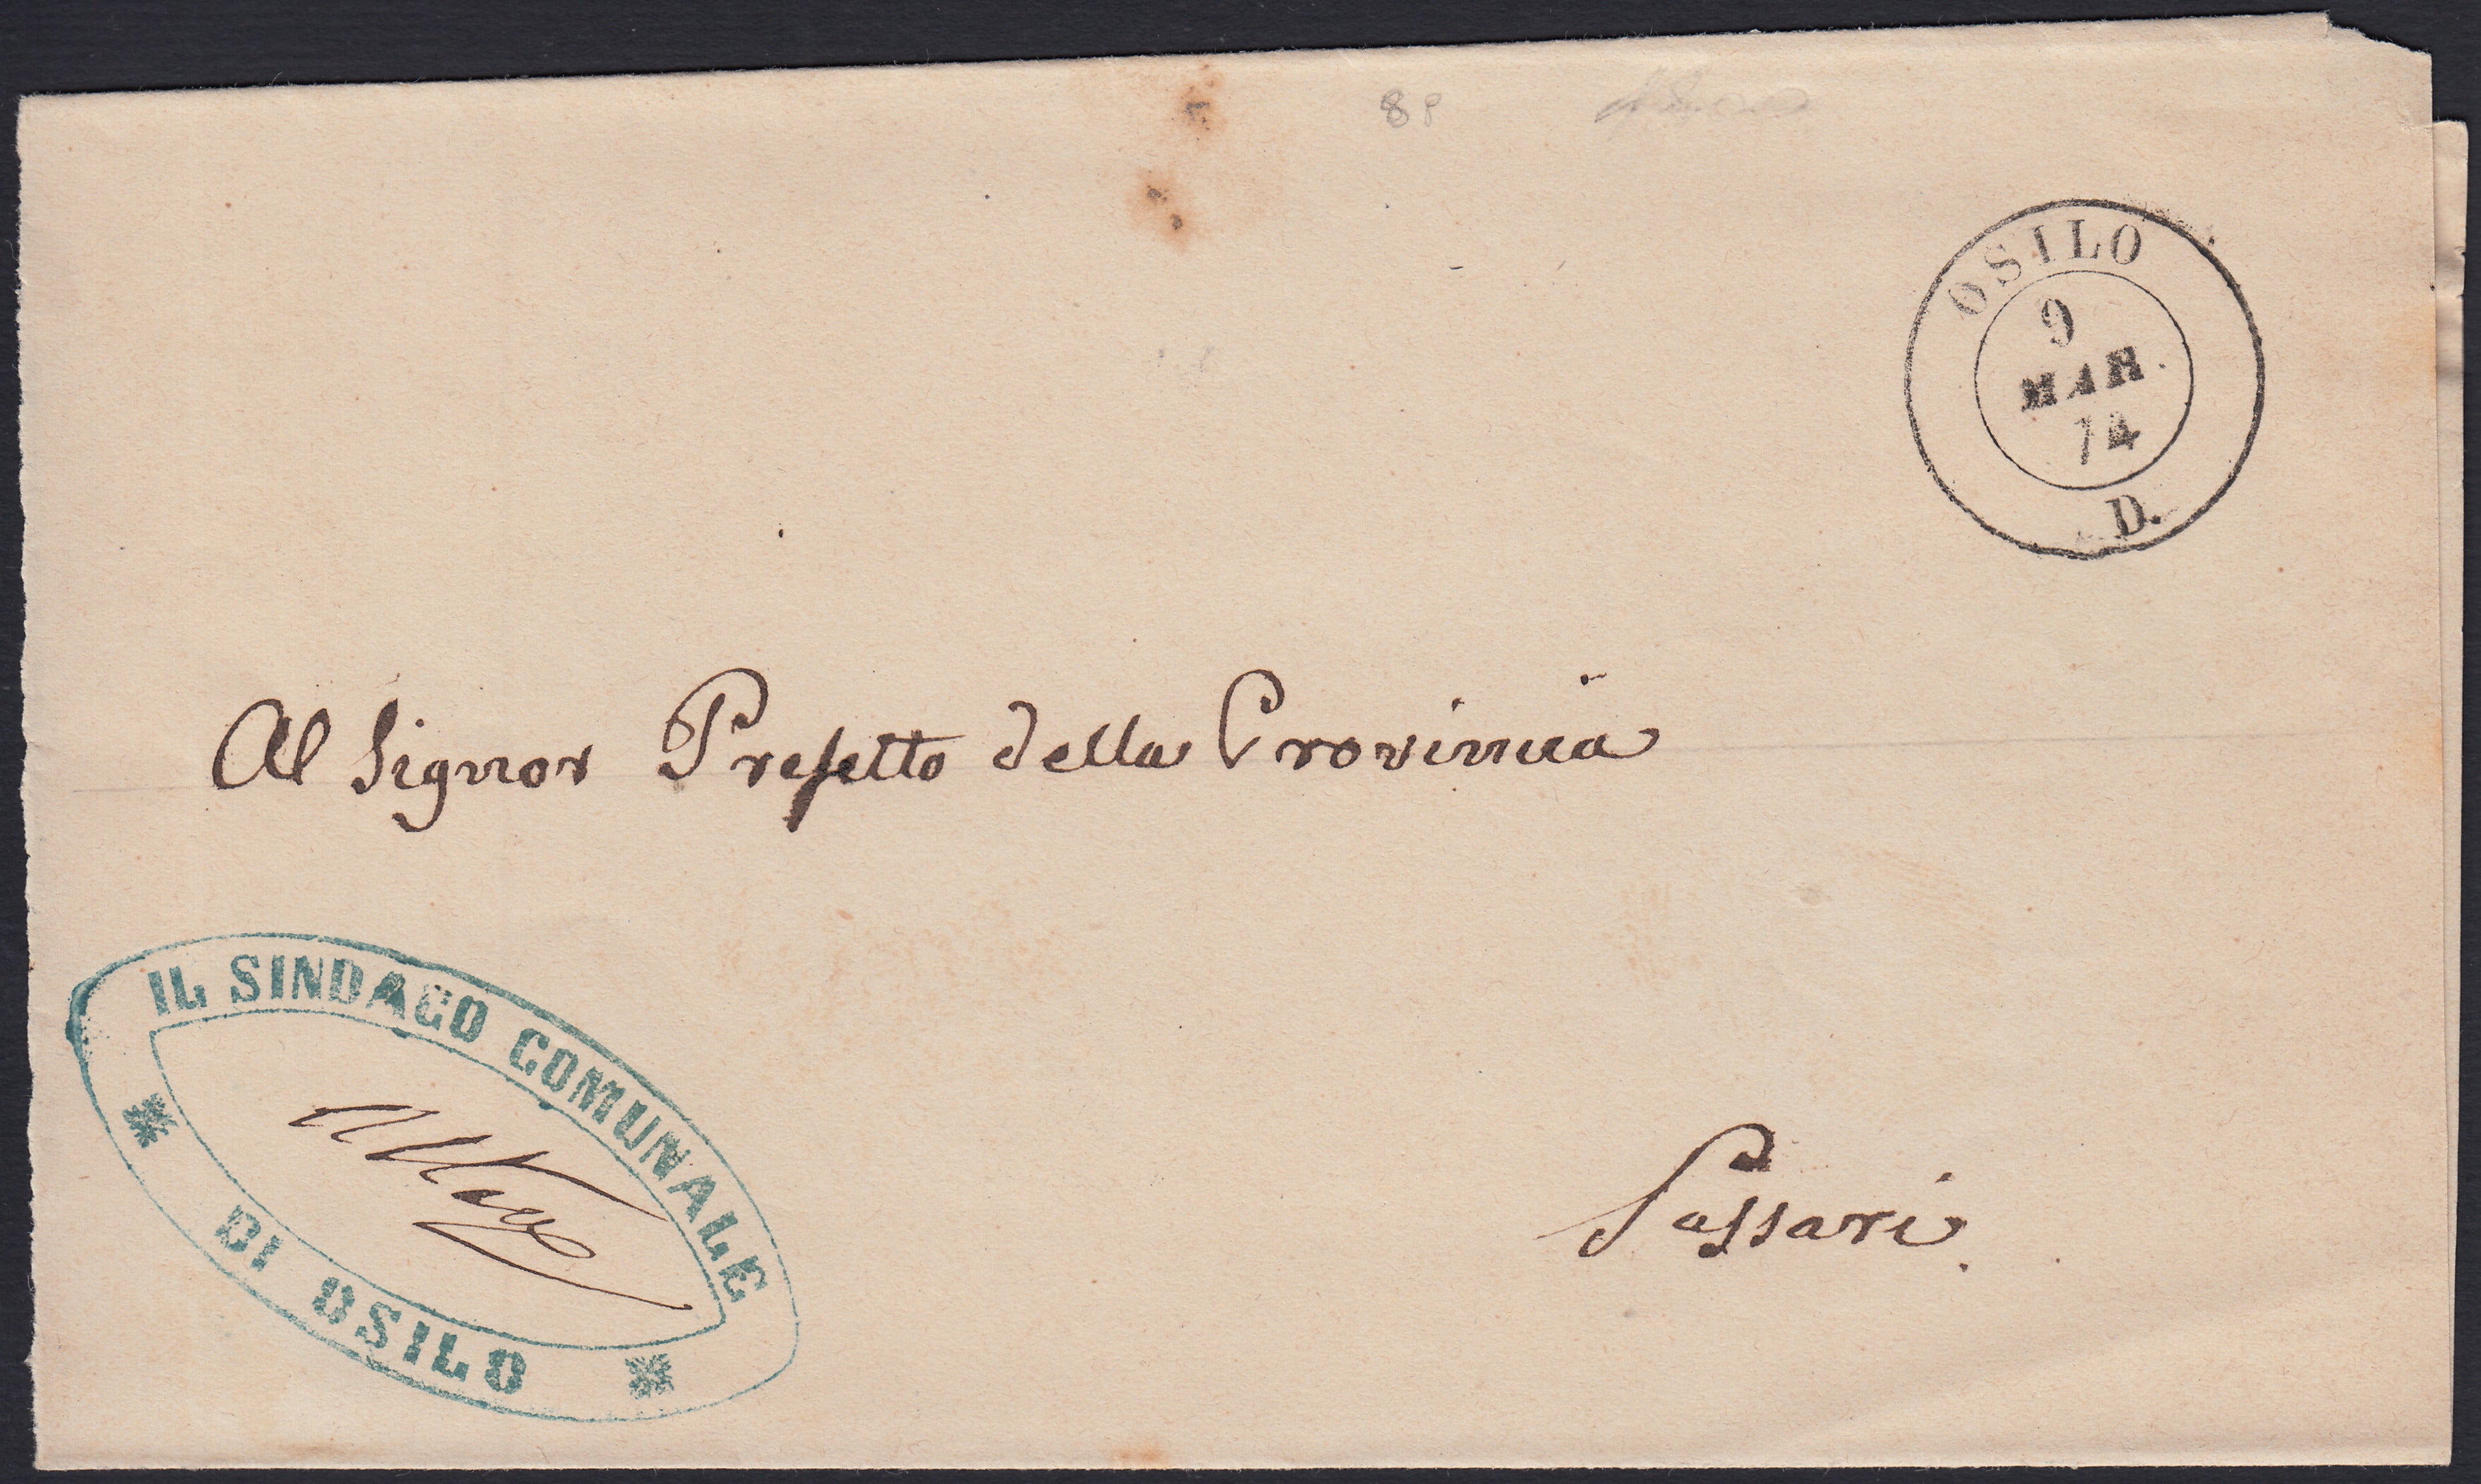 8P
OSILO
9
MAR.
74
D.
Al Signor Prefetto della Provincia
IL SINDACO COMUNALE
DI OSILO
Sassari.